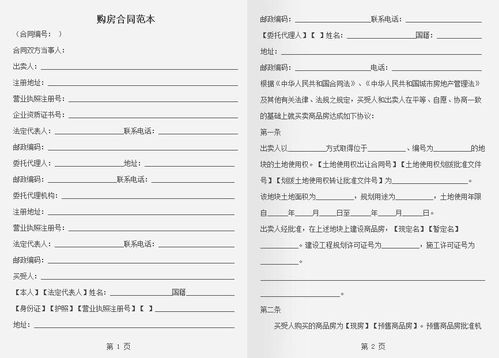 购房合同范本
（合同编号： ）
合同双方当事人：
出卖人：
注册地址：
营业执照注册号：
企业资质证书号：
法定代表人：联系电话：
邮政编码：
委托代理人：地址：
邮政编码：联系电话：
委托代理机构：
注册地址：
营业执照注册号：
法定代表人：联系电话：
邮政编码：
买受人：
【本人】【法定代表人】姓名：国籍
【身份证】【护照】【营业执照注册号】【 】
地址：
第 1 页
邮政编码：联系电话：
【委托代理人】【 】姓名：国籍：
地址：
邮政编码：电话：
根据《中华人民共和国合同法》、《中华人民共和国城市房地产管理法》
及其他有关法律、法规之规定，买受人和出卖人在平等、自愿、协商一致
的基础上就买卖商品房达成如下协议：
第一条
出卖人以________方式取得位于________、编号为________的地
块的土地使用权。【土地使用权出让合同号】【土地使用权划拨批准文件
号】【划拨土地使用权转让批准文件号】为________。
该地块土地面积为________，规划用途为________，土地使用年限
自____年____月____日至____年____月____日。
出卖人经批准，在上述地块上建设商品房，【现定名】【暂定名】
________。建设工程规划许可证号为________，施工许可证号为
________。
第二条
买受人购买的商品房为【现房】【预售商品房】。预售商品房批准机
第 2 页